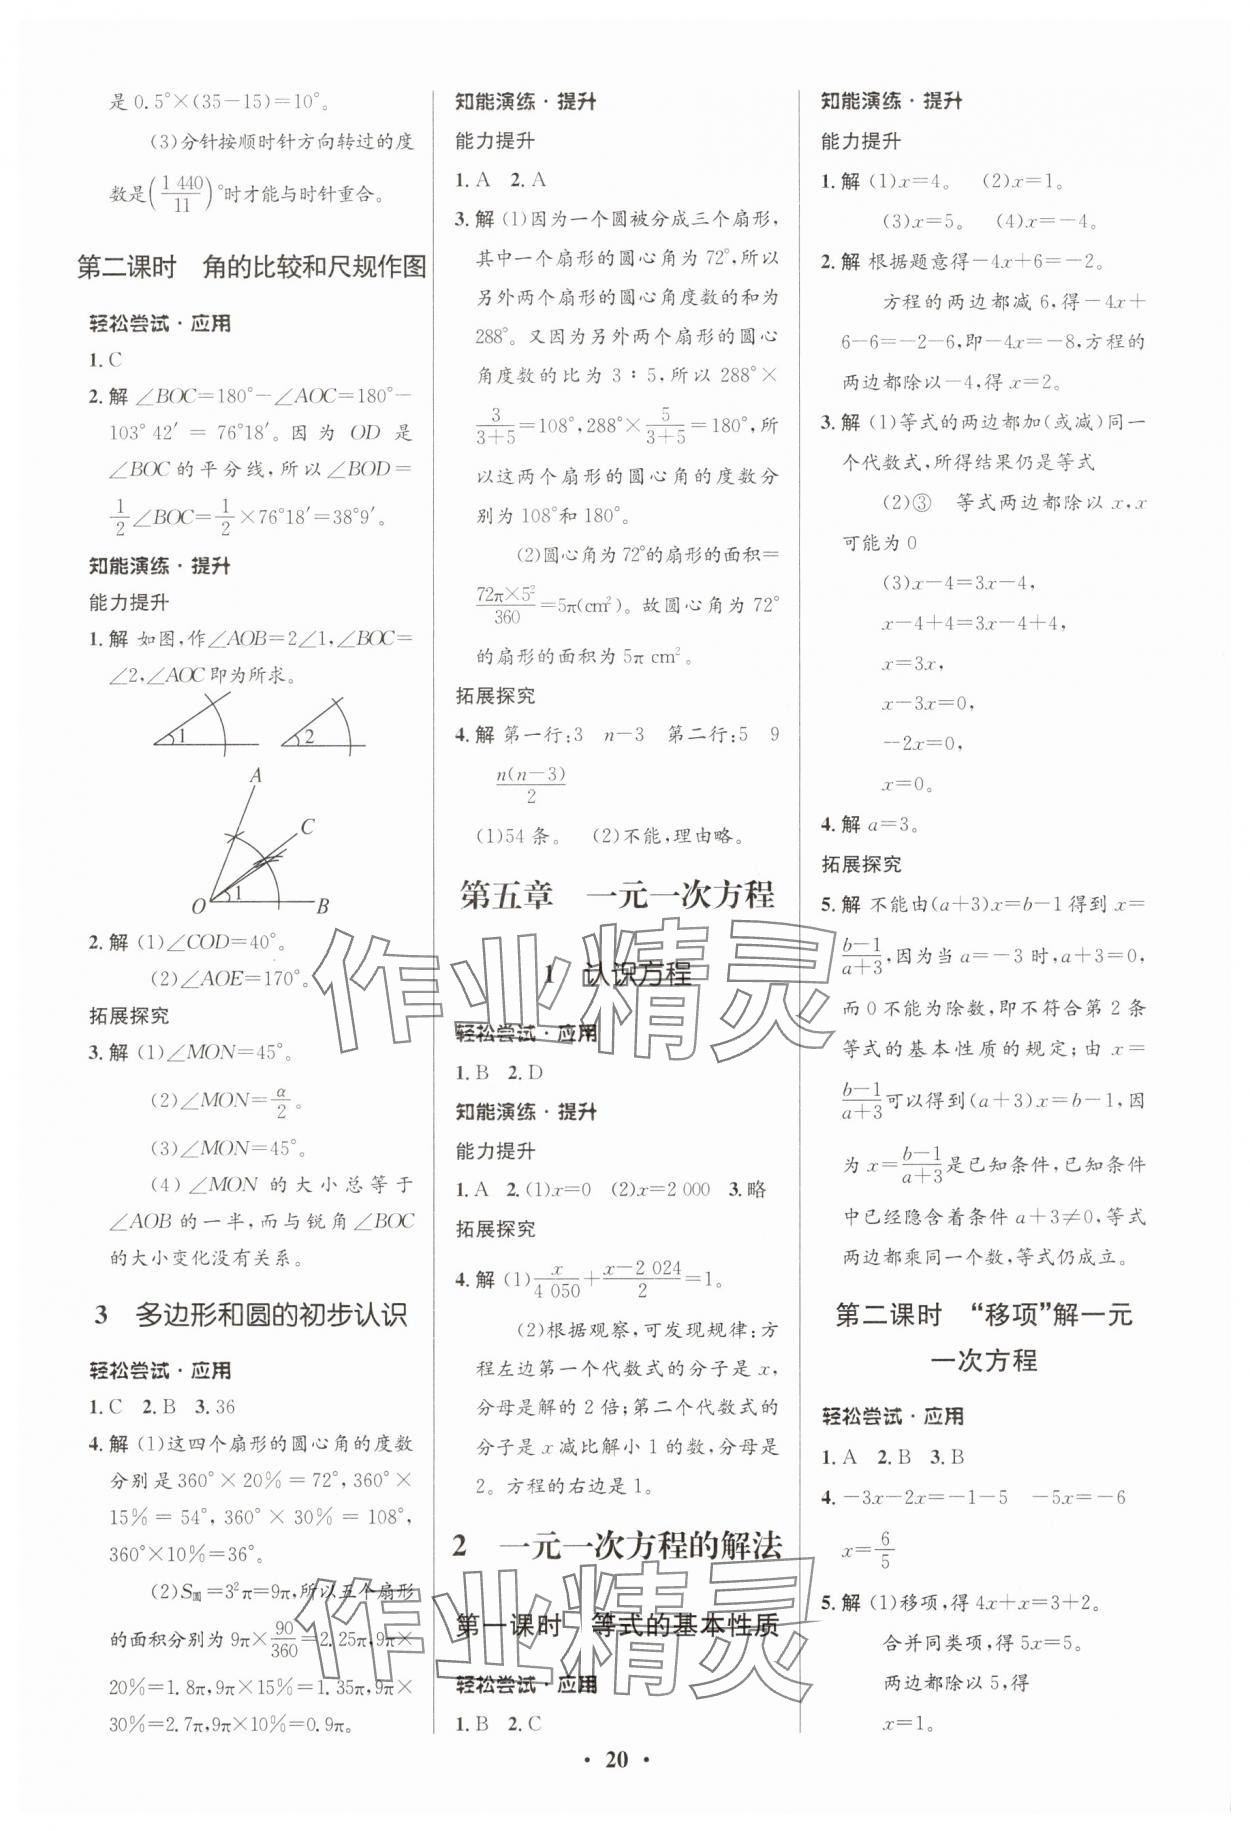 是 0.5°×(35-15)=10°。
(3)分针按顺时针方向转过的度
数是(1 440/11)°时才能与时针重合。
第二课时　角的比较和尺规作图
轻松尝试·应用
1. C
2. 解 ∠BOC=180°-∠AOC=180°-
103°42′ = 76°18′。因为 OD 是
∠BOC 的平分线,所以∠BOD=
1/2∠BOC=1/2×76°18′=38°9′。
知能演练·提升
能力提升
1. 解 如图,作∠AOB=2∠1,∠BOC=
∠2,∠AOC即为所求。
1
2
A
C
O
1
B
2. 解 (1)∠COD=40°。
(2)∠AOE=170°。
拓展探究
3. 解 (1)∠MON=45°。
(2)∠MON=α/2。
(3)∠MON=45°。
(4)∠MON 的大小总等于
∠AOB 的一半,而与锐角∠BOC
的大小变化没有关系。
3　多边形和圆的初步认识
轻松尝试·应用
1. C　2. B　3. 36
4. 解 (1)这四个扇形的圆心角的度数
分别是 360°×20%=72°,360°×
15%=54°,360°×30%=108°,
360°×10%=36°。
(2)S圆=3²π=9π,所以五个扇形
的面积分别为 9π×90/360=2.25π,9π×
20%=1.8π,9π×15%=1.35π,9π×
30%=2.7π,9π×10%=0.9π。
知能演练·提升
能力提升
1. A　2. A
3. 解 (1)因为一个圆被分成三个扇形,
其中一个扇形的圆心角为 72°,所以
另外两个扇形的圆心角度数的和为
288°。又因为另外两个扇形的圆心
角度数的比为 3∶5,所以 288°×
3/(3+5)=108°,288°×5/(3+5)=180°,所
以这两个扇形的圆心角的度数分
别为 108°和 180°。
(2)圆心角为72°的扇形的面积=
72π×5²/360=5π(cm²)。故圆心角为 72°
的扇形的面积为 5π cm²。
拓展探究
4. 解 第一行:3　n-3　第二行:5　9
n(n-3)/2
(1)54 条。　(2)不能,理由略。
第五章　一元一次方程
1　认识方程
轻松尝试·应用
1. B　2. D
知能演练·提升
能力提升
1. A　2. (1)x=0　(2)x=2 000　3. 略
拓展探究
4. 解 (1)x/4 050+(x-2 024)/2=1。
(2)根据观察,可发现规律:方
程左边第一个代数式的分子是 x,
分母是解的 2 倍;第二个代数式的
分子是 x 减比解小 1 的数,分母是
2。方程的右边是 1。
2　一元一次方程的解法
第一课时　等式的基本性质
轻松尝试·应用
1. B　2. C
知能演练·提升
能力提升
1. 解 (1)x=4。　(2)x=1。
(3)x=5。　(4)x=-4。
2. 解 根据题意得-4x+6=-2。
方程的两边都减 6,得-4x+
6-6=-2-6,即-4x=-8,方程的
两边都除以-4,得 x=2。
3. 解 (1)等式的两边都加(或减)同一
个代数式,所得结果仍是等式
(2)③　等式两边都除以 x,x
可能为 0
(3)x-4=3x-4,
x-4+4=3x-4+4,
x=3x,
x-3x=0,
-2x=0,
x=0。
4. 解 a=3。
拓展探究
5. 解 不能由(a+3)x=b-1 得到 x=
(b-1)/(a+3),因为当 a=-3 时,a+3=0,
而 0 不能为除数,即不符合第 2 条
等式的基本性质的规定;由 x=
(b-1)/(a+3)可以得到(a+3)x=b-1,因
为 x=(b-1)/(a+3)是已知条件,已知条件
中已经隐含着条件 a+3≠0,等式
两边都乘同一个数,等式仍成立。
第二课时　“移项”解一元
一次方程
轻松尝试·应用
1. A　2. B　3. B
4. -3x-2x=-1-5　-5x=-6
x=6/5
5. 解 (1)移项,得 4x+x=3+2。
合并同类项,得 5x=5。
两边都除以 5,得
x=1。
作业精灵
作业精灵
· 20 ·